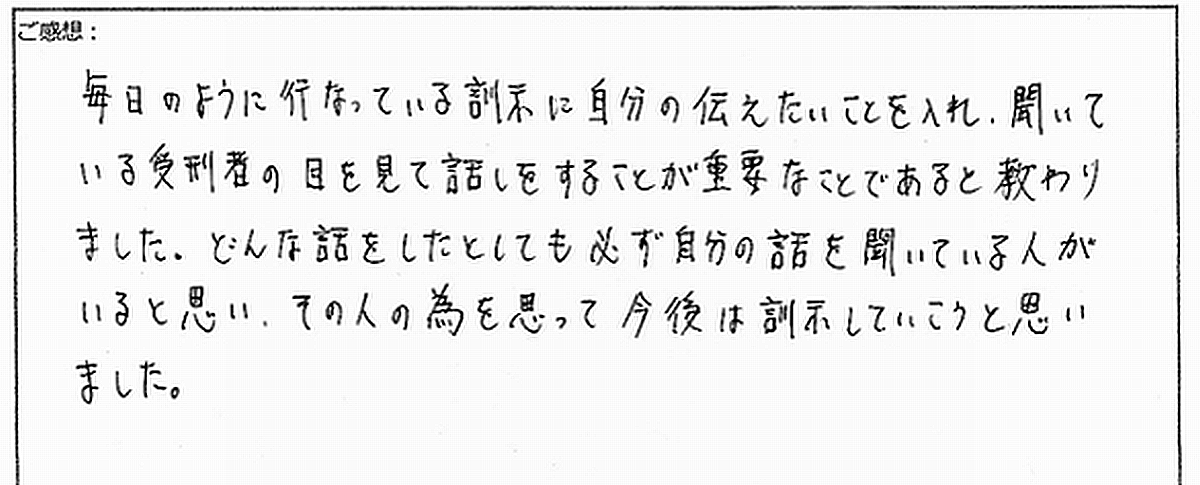 ご感想：
毎日のように行なっている訓示に自分の伝えたいことを入れ、聞いて
いる受刑者の目を見て話しをすることが重要なことであると教わり
ました。どんな話をしたとしても必ず自分の話を聞いている人が
いると思い、その人の為を思って今後は訓示していこうと思い
ました。